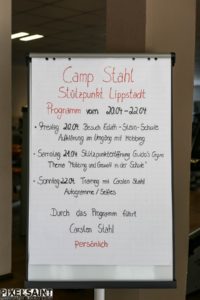 Camp Stahl
Stützpunkt Lippstadt
Programm vom 20.04-22.04
• Freitag 20.04 Besuch Edith-Stein-Schule
Aufklärung im Umgang mit Mobbing
• Samstag 21.04 Stützpunkteröffnung Guido's Gym
Thema "Mobbing und Gewalt in der Schule"
• Sonntag 22.04 Training mit Carsten Stahl
Autogramme / Selfies
Durch das Programm führt
Carsten Stahl
Persönlich
PIXELSAINT